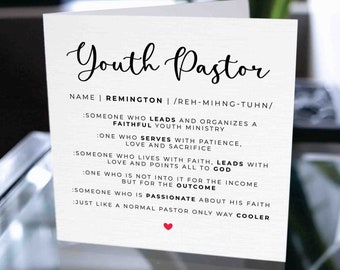 Youth Pastor
NAME | REMINGTON | /REH-MIHNG-TUHN/
:SOMEONE WHO LEADS AND ORGANIZES A
FAITHFUL YOUTH MINISTRY
:ONE WHO SERVES WITH PATIENCE,
LOVE AND SACRIFICE
:SOMEONE WHO LIVES WITH FAITH, LEADS WITH
LOVE AND POINTS ALL TO GOD
:ONE WHO IS NOT INTO IT FOR THE INCOME
BUT FOR THE OUTCOME
:SOMEONE WHO IS PASSIONATE ABOUT HIS FAITH
:JUST LIKE A NORMAL PASTOR ONLY WAY COOLER